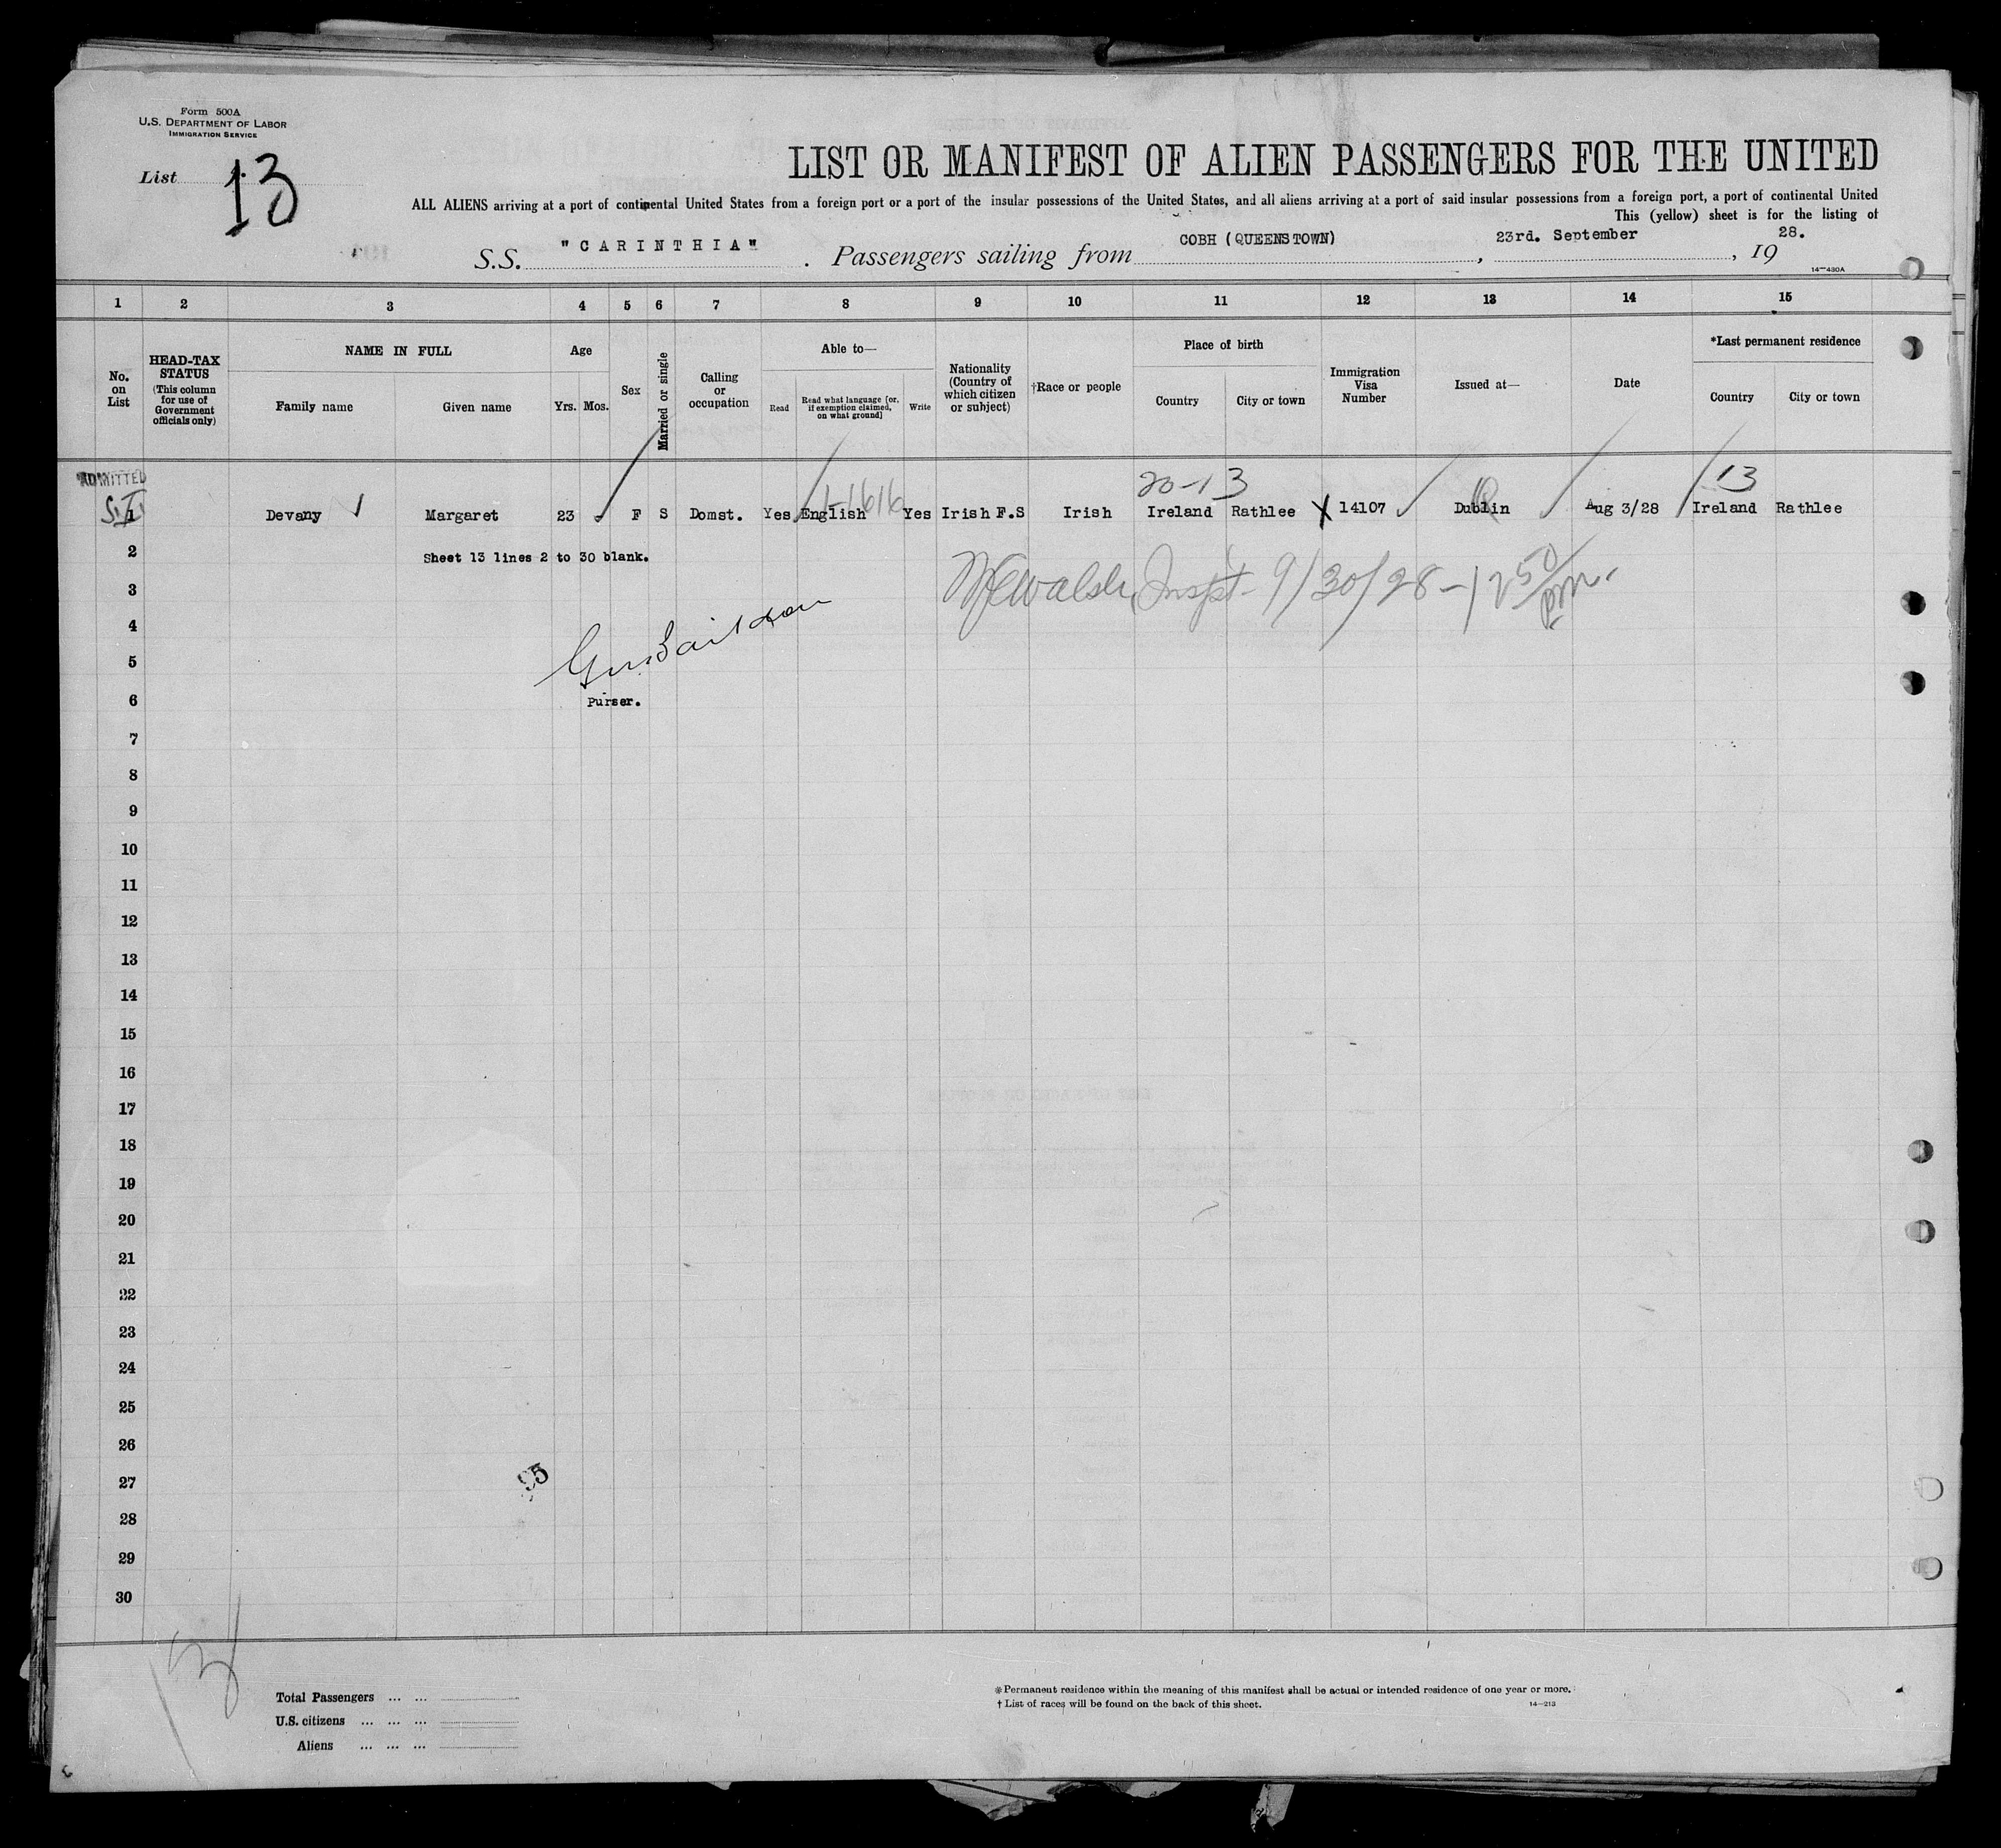 Form 500A
U.S. DEPARTMENT OF LABOR
IMMIGRATION SERVICE
List 13
LIST OR MANIFEST OF ALIEN PASSENGERS FOR THE UNITED
ALL ALIENS arriving at a port of continental United States from a foreign port or a port of the insular possessions of the United States, and all aliens arriving at a port of said insular possessions from a foreign port, a port of continental United
This (yellow) sheet is for the listing of
S.S. "CARINTHIA" . Passengers sailing from COBH (QUEENSTOWN) , 23rd. September , 19 28.
14—430A
1 2 3 4 5 6 7 8 9 10 11 12 13 14 15
No. on List
HEAD-TAX STATUS (This column for use of Government officials only)
NAME IN FULL
Family name Given name
Age
Yrs. Mos.
Sex
Married or single
Calling or occupation
Able to—
Read
Read what language [or, if exemption claimed, on what ground]
Write
Nationality (Country of which citizen or subject)
†Race or people
Place of birth
Country City or town
Immigration Visa Number
Issued at—
Date
*Last permanent residence
Country City or town
ADMITTED
S.I.
20-13
13
1-1616
1 Devany Margaret 23 F S Domst. Yes English Yes Irish F.S Irish Ireland Rathlee X 14107 Dublin Aug 3/28 Ireland Rathlee
2 Sheet 13 lines 2 to 30 blank.
Walsh, Inspt- 9/30/28 - 12 50 pm.
3
4
5
6 Purser.
7
8
9
10
11
12
13
14
15
16
17
18
19
20
21
22
23
24
25
26
27
95
28
29
30
Total Passengers ... ...
U.S. citizens ... ... ...
Aliens ... ... ...
*Permanent residence within the meaning of this manifest shall be actual or intended residence of one year or more.
† List of races will be found on the back of this sheet.
14—213